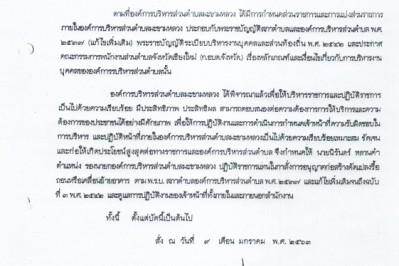 ตามที่องค์การบริหารส่วนตำบลมะขามหลวง ได้มีการกำหนดส่วนราชการและการแบ่งส่วนราชการ
ภายในองค์การบริหารส่วนตำบลมะขามหลวง ประกอบกับพระราชบัญญัติสภาตำบลและองค์การบริหารส่วนตำบล พ.ศ.
๒๕๓๗ (แก้ไขเพิ่มเติม) พระราชบัญญัติระเบียบบริหารงานบุคคลส่วนท้องถิ่น พ.ศ. ๒๕๔๒ และประกาศ
คณะกรรมการพนักงานส่วนตำบลจังหวัดเชียงใหม่ (ก.อบต.จังหวัด) เรื่องหลักเกณฑ์และเงื่อนไขเกี่ยวกับการบริหารงาน
บุคคลขององค์การบริหารส่วนตำบลนั้น
องค์การบริหารส่วนตำบลมะขามหลวง ได้พิจารณาแล้วเพื่อให้บริหารราชการและปฏิบัติราชการ
เป็นไปด้วยความเรียบร้อย มีประสิทธิภาพ ประสิทธิผล สามารถตอบสนองต่อความต้องการการให้บริการและความ
ต้องการของประชาชนได้อย่างมีศักยภาพ เพื่อให้การปฏิบัติงานและการดำเนินการกำหนดเจ้าหน้าที่ความรับผิดชอบใน
การบริหาร และปฏิบัติหน้าที่ภายในองค์การบริหารส่วนตำบลมะขามหลวงเป็นไปด้วยความเรียบร้อยเหมาะสม ชัดเจน
และก่อให้เกิดประโยชน์สูงสุดต่อทางราชการและองค์การบริหารส่วนตำบล จึงกำหนดให้ นายนิรันดร์ หลานคำ
ตำแหน่ง รองนายกองค์การบริหารส่วนตำบล ปฏิบัติราชการแทนในการสั่งการอนุญาตก่อสร้างดัดแปลงรื้อ
ถอนหรือเคลื่อนย้ายอาคาร ตาม พ.ร.บ. สภาตำบลองค์การบริหารส่วนตำบล พ.ศ. ๒๕๓๗ และแก้ไขเพิ่มเติมจนถึงฉบับ
ที่ ๓ พ.ศ. ๒๕๔๒ และดูแลการปฏิบัติงานของเจ้าหน้าที่ทั้งภายในและภายนอกสำนักงาน
ทั้งนี้ ตั้งแต่บัดนี้เป็นต้นไป
สั่ง ณ วันที่ ๙ เดือน มกราคม พ.ศ. ๒๕๖๓